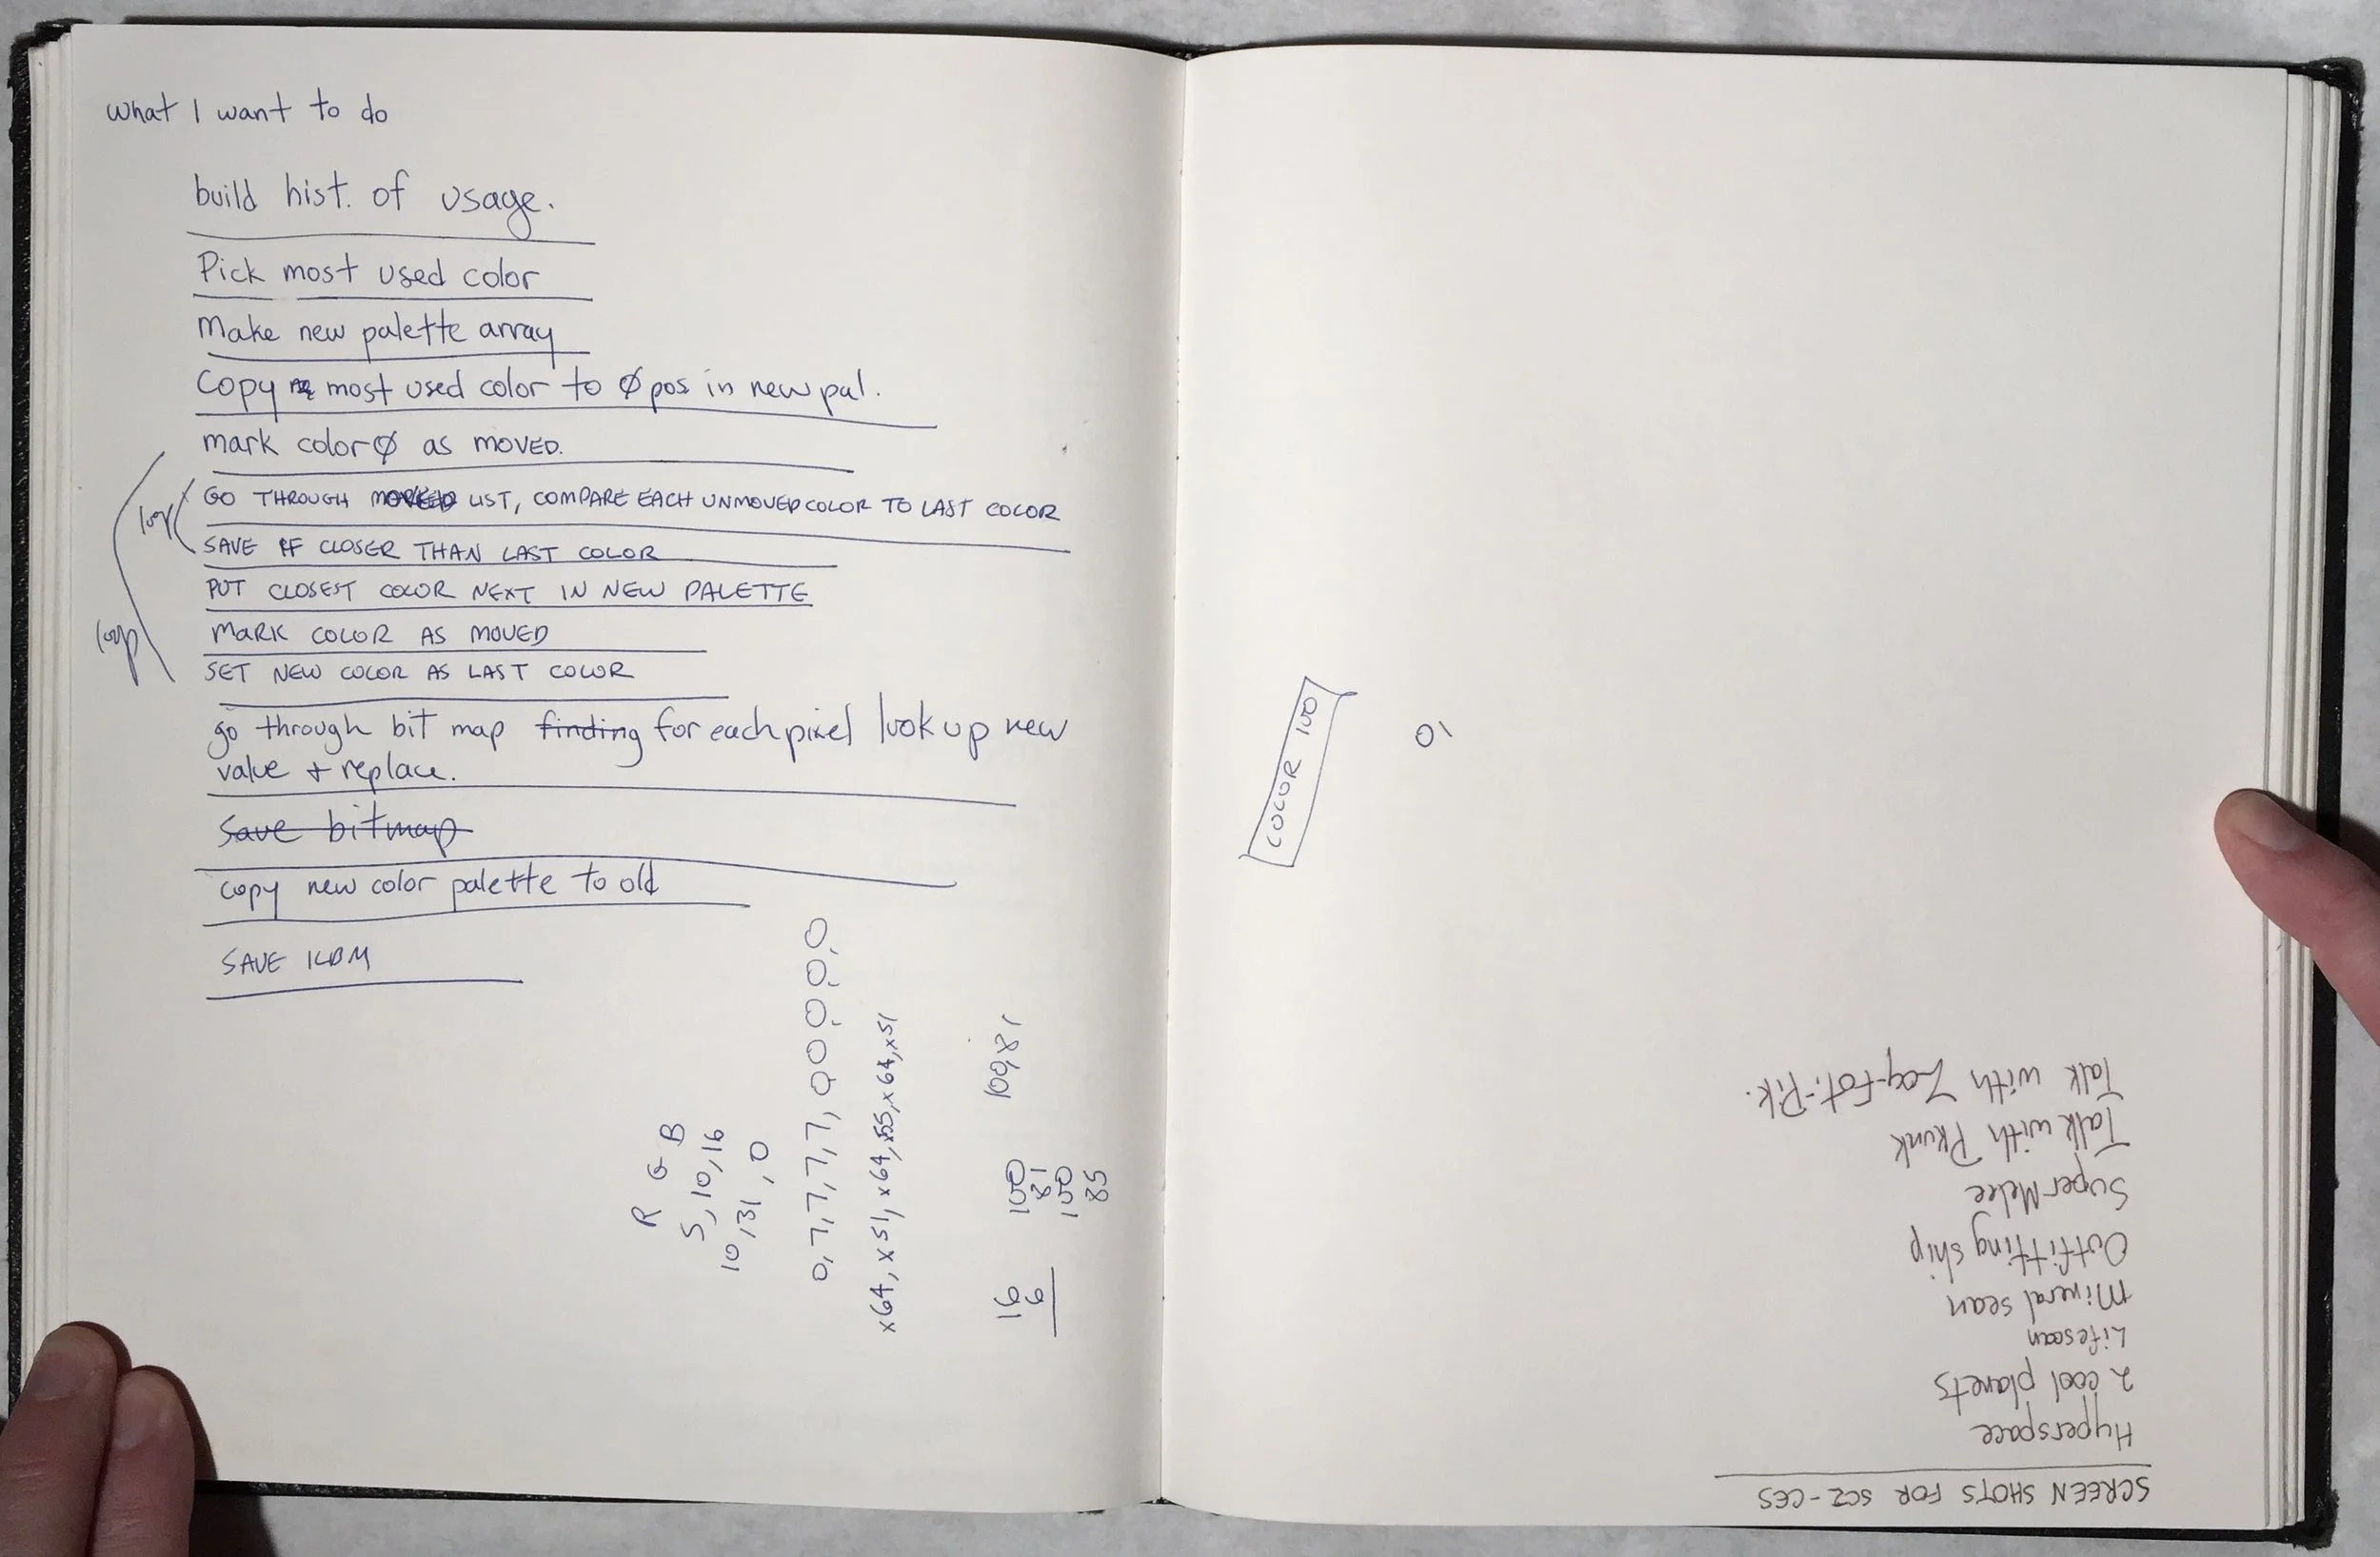 what I want to do
build hist. of usage.
Pick most used color
Make new palette array
Copy most used color to Ø pos in new pal.
mark color Ø as MOVED.
GO THROUGH LIST, COMPARE EACH UNMOVED COLOR TO LAST COLOR
loop
SAVE IF CLOSER THAN LAST COLOR
PUT CLOSEST COLOR NEXT IN NEW PALETTE
MARK COLOR AS MOVED
loop
SET NEW COLOR AS LAST COLOR
go through bit map finding for each pixel look up new
value + replace.
Save bitmap
copy new color palette to old
SAVE ILBM
R G B
5, 10, 16
10, 31, 0
0, 7, 7, 7, 7, 0 0, 0, 0, 0
x64, x51, x64, x55, x64, x51
100, 81
100
81
100
85
16
6
COLOR 100
10
SCREEN SHOTS FOR SC2-CES
Hyperspace
2 cool planets
Lifescan
Mineral scan
Outfitting ship
SuperMelee
Talk with Pkunk
Talk with Zoq-Fot-Pik.